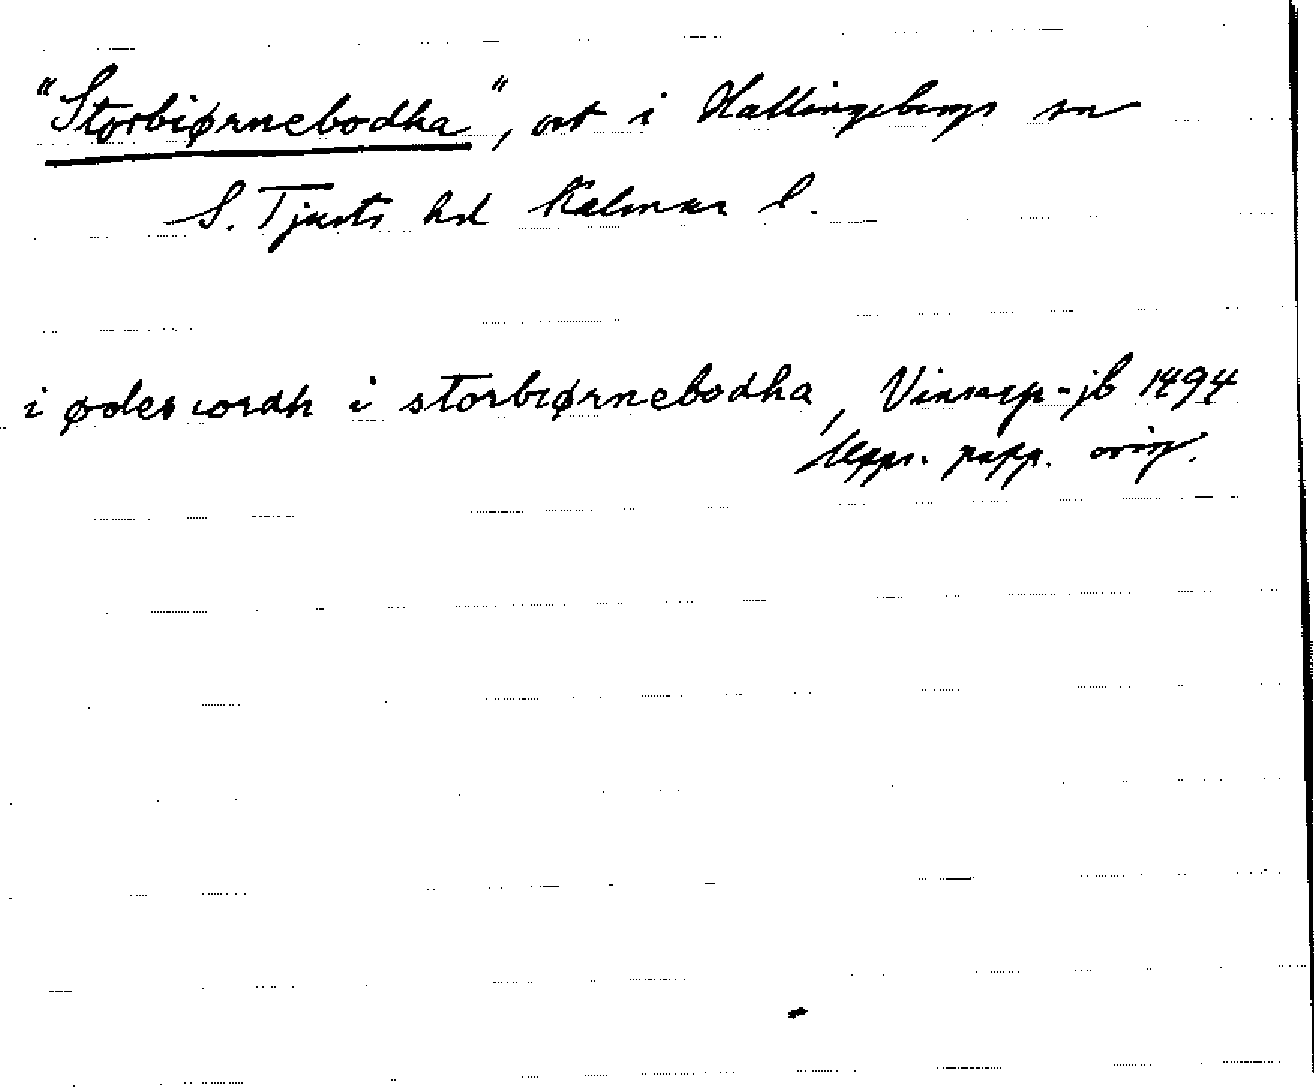 "Storbiørnebodha", ort i Hallingebergs sn
S. Tjusts hd Kalmar l.
i ødes iordh i storbiørnebodha, Vinsarp-jb 1494
Upps. papp. orig.